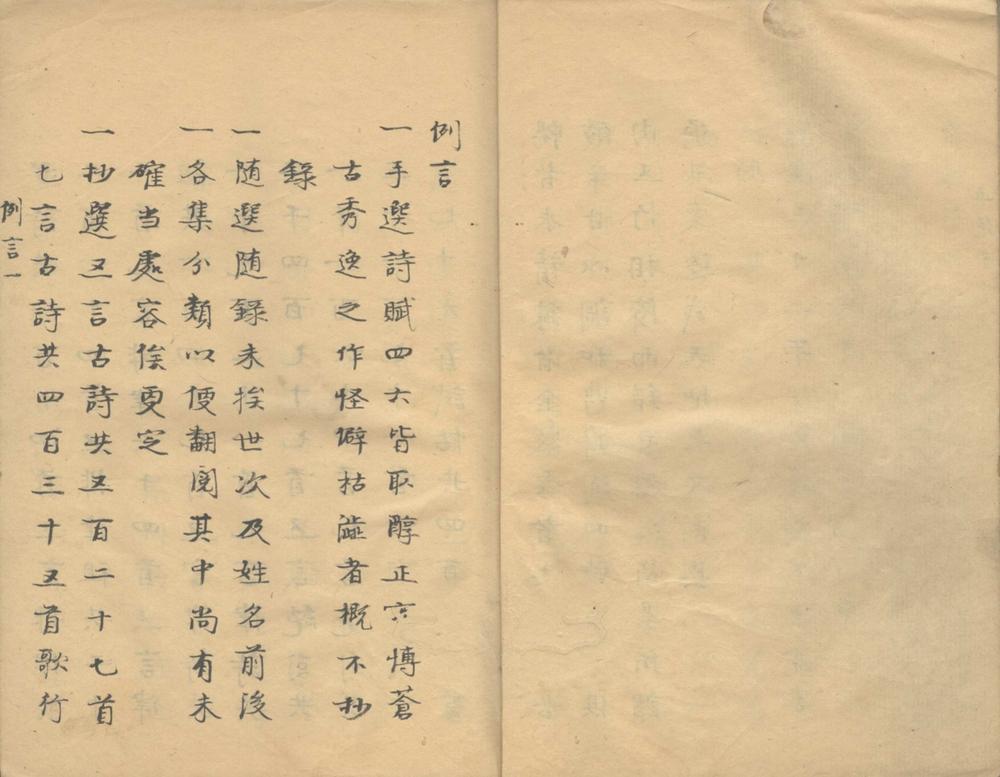 例言
一手選詩賦四六皆取醇正宗博蒼
古秀逸之作怪僻枯澁者概不抄
錄
一随選随錄未挨世次及姓名前後
一各集分類以便翻閱其中尚有未
確当處容俟更定
一抄選五言古詩共五百二十七首
七言古詩共四百三十五首歌行
例言一